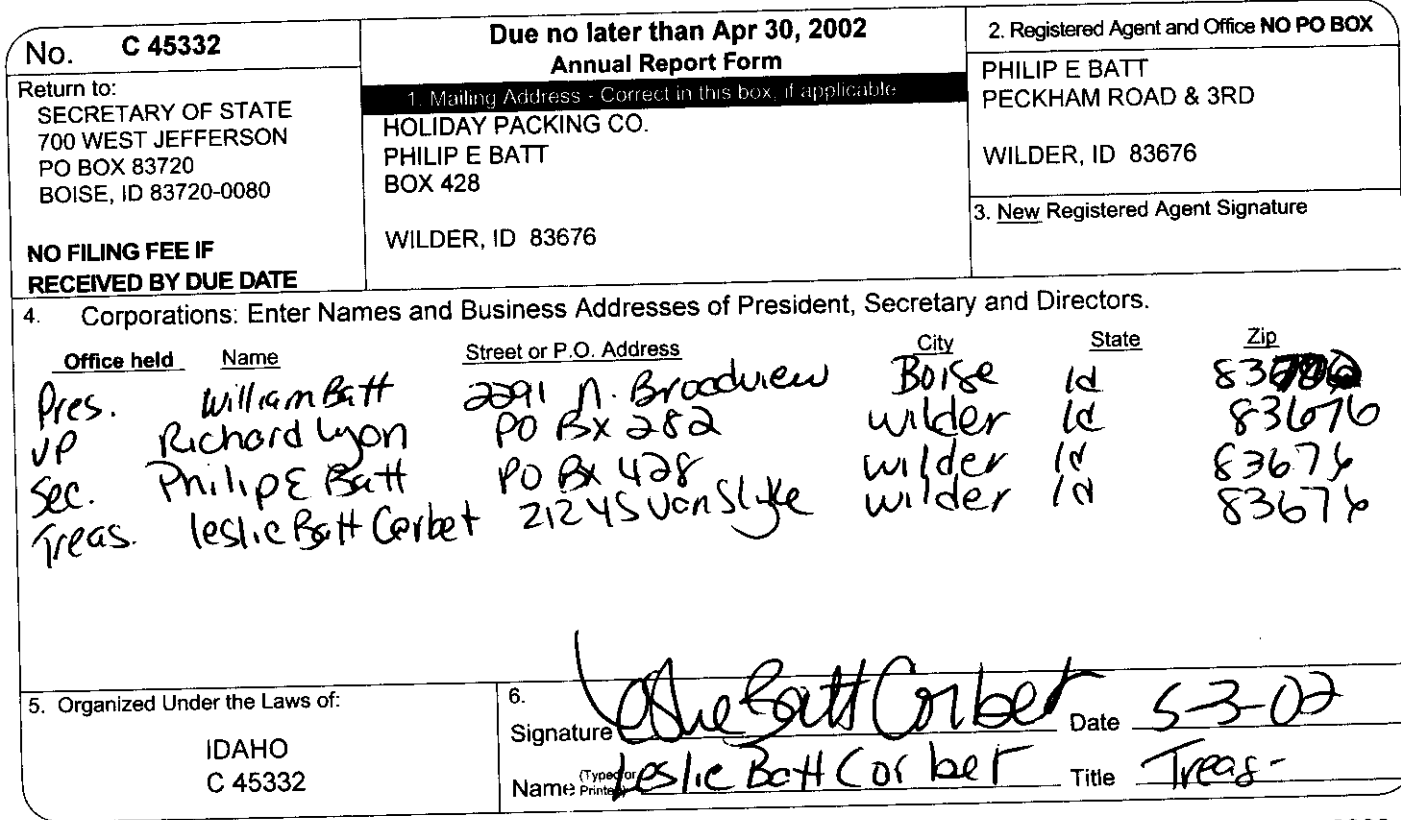 No. C 45332
Return to:
SECRETARY OF STATE
700 WEST JEFFERSON
PO BOX 83720
BOISE, ID 83720-0080
NO FILING FEE IF
RECEIVED BY DUE DATE
Due no later than Apr 30, 2002
Annual Report Form
1. Mailing Address - Correct in this box, if applicable
HOLIDAY PACKING CO.
PHILIP E BATT
BOX 428
WILDER, ID 83676
2. Registered Agent and Office NO PO BOX
PHILIP E BATT
PECKHAM ROAD & 3RD
WILDER, ID 83676
3. New Registered Agent Signature
4. Corporations: Enter Names and Business Addresses of President, Secretary and Directors.
Office held Name Street or P.O. Address City State Zip
Pres. William Batt 2291 N. Broadview Boise Id
VP Richard Lyon PO Bx 282 Wilder Id 83676
Sec. Philip E Batt PO Bx 428 Wilder Id 83676
Treas. Leslie Batt Corbet 21245 Van Slyke Wilder Id 83676
5. Organized Under the Laws of:
IDAHO
C 45332
6.
Signature Leslie Batt Corbet Date 5-3-02
Name (Typed or Printed) Leslie Batt Corbet Title Treas-